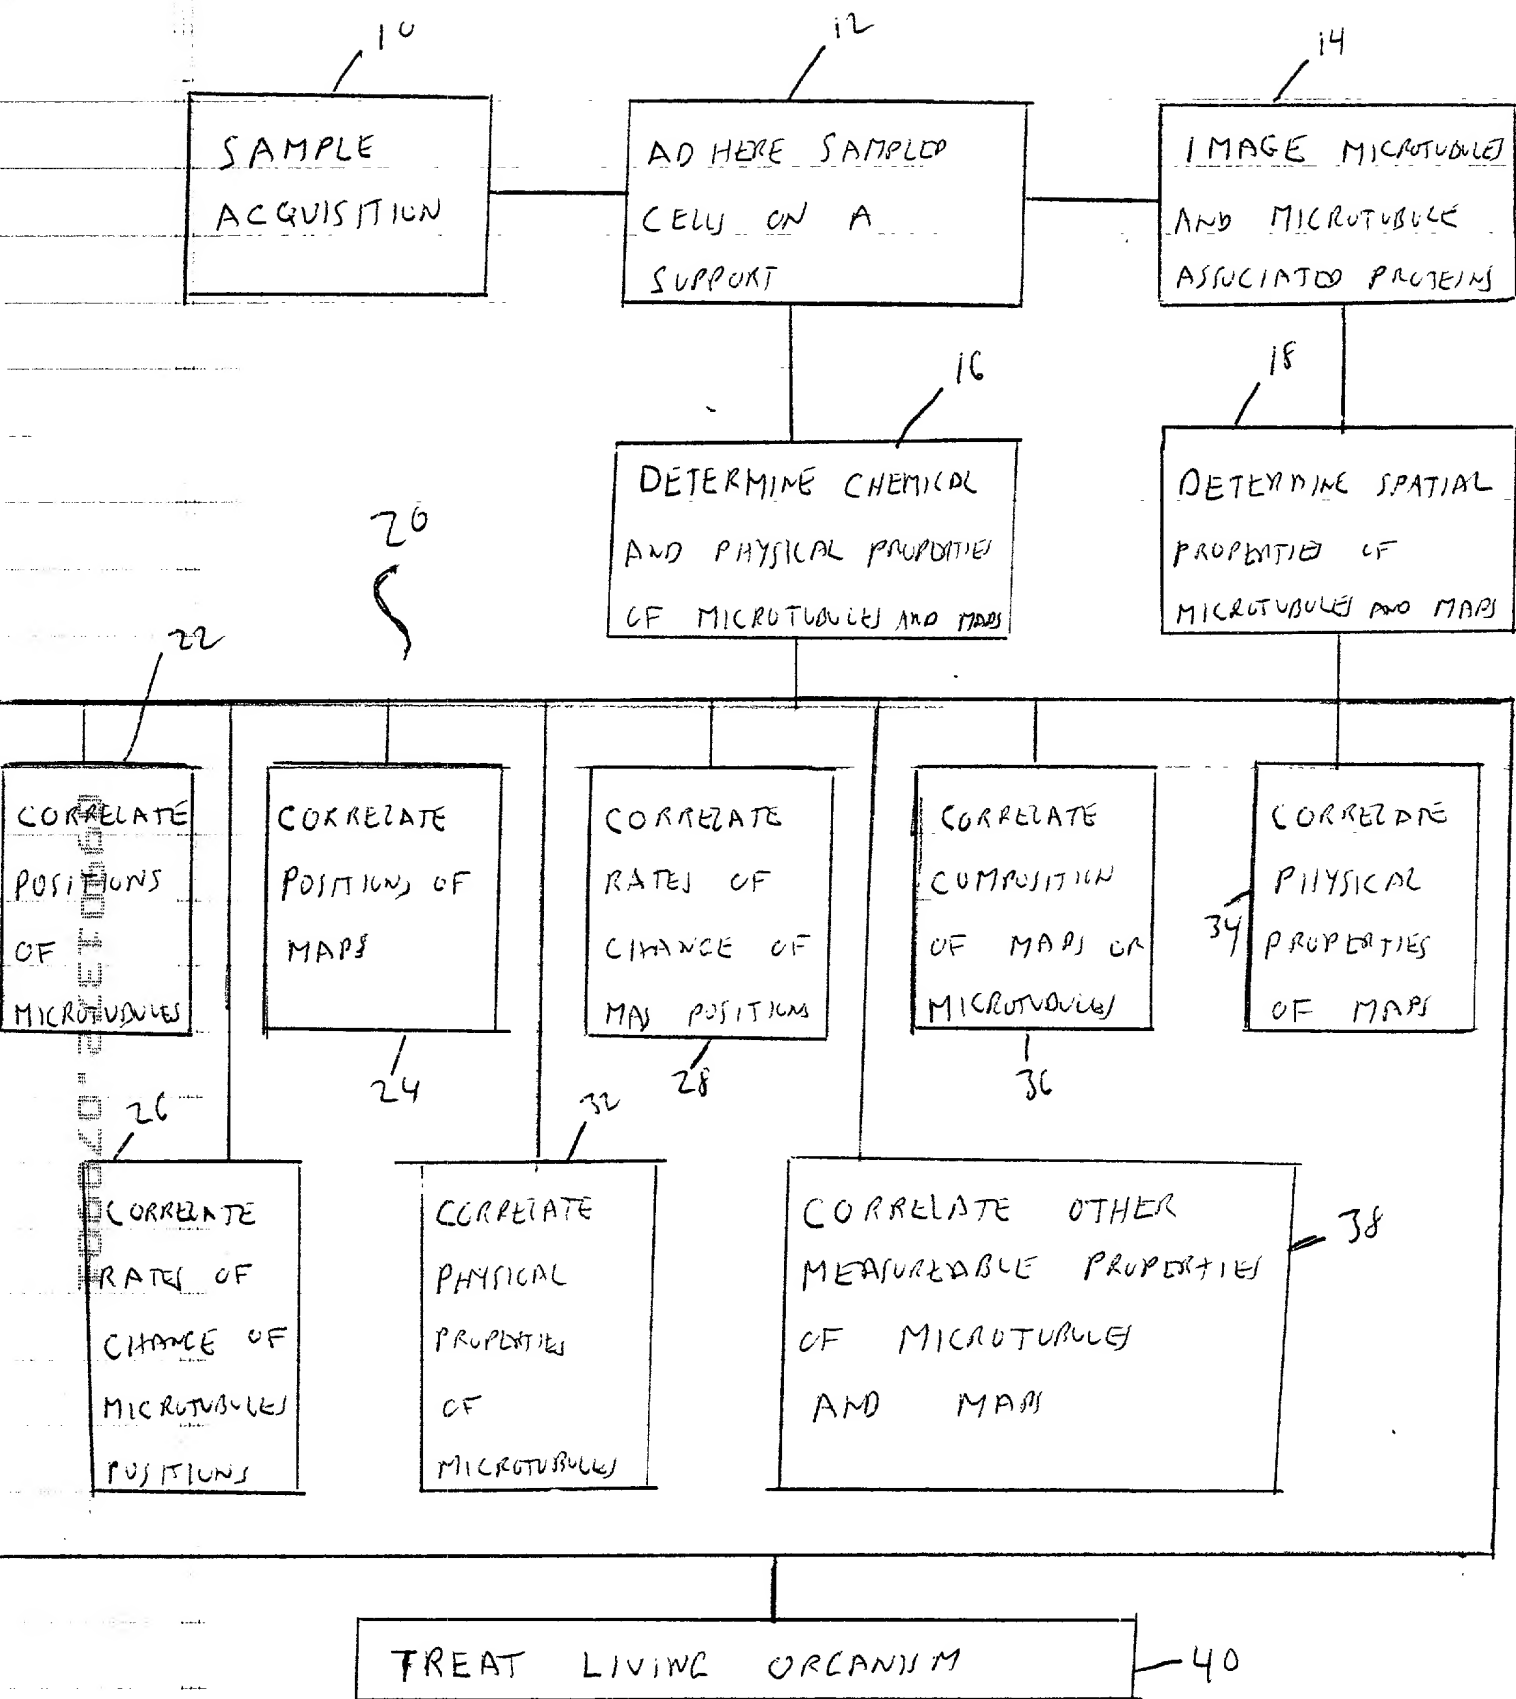 10
12
14
SAMPLE
ACQUISITION
ADHERE SAMPLED
CELLS ON A
SUPPORT
IMAGE MICROTUBULES
AND MICROTUBULE
ASSOCIATED PROTEINS
16
18
DETERMINE CHEMICAL
AND PHYSICAL PROPERTIES
OF MICROTUBULES AND MAPS
DETERMINE SPATIAL
PROPERTIES OF
MICROTUBULES AND MAPS
20
22
CORRELATE
POSITIONS
OF
MICROTUBULES
CORRELATE
POSITIONS OF
MAPS
24
CORRELATE
RATES OF
CHANGE OF
MAP POSITIONS
28
CORRELATE
COMPOSITION
OF MAPS OR
MICROTUBULES
36
CORRELATE
PHYSICAL
PROPERTIES
OF MAPS
34
26
CORRELATE
RATES OF
CHANGE OF
MICROTUBULES
POSITIONS
32
CORRELATE
PHYSICAL
PROPERTIES
OF
MICROTUBULES
CORRELATE OTHER
MEASUREABLE PROPERTIES
OF MICROTUBULES
AND MAPS
38
TREAT LIVING ORGANISM
40